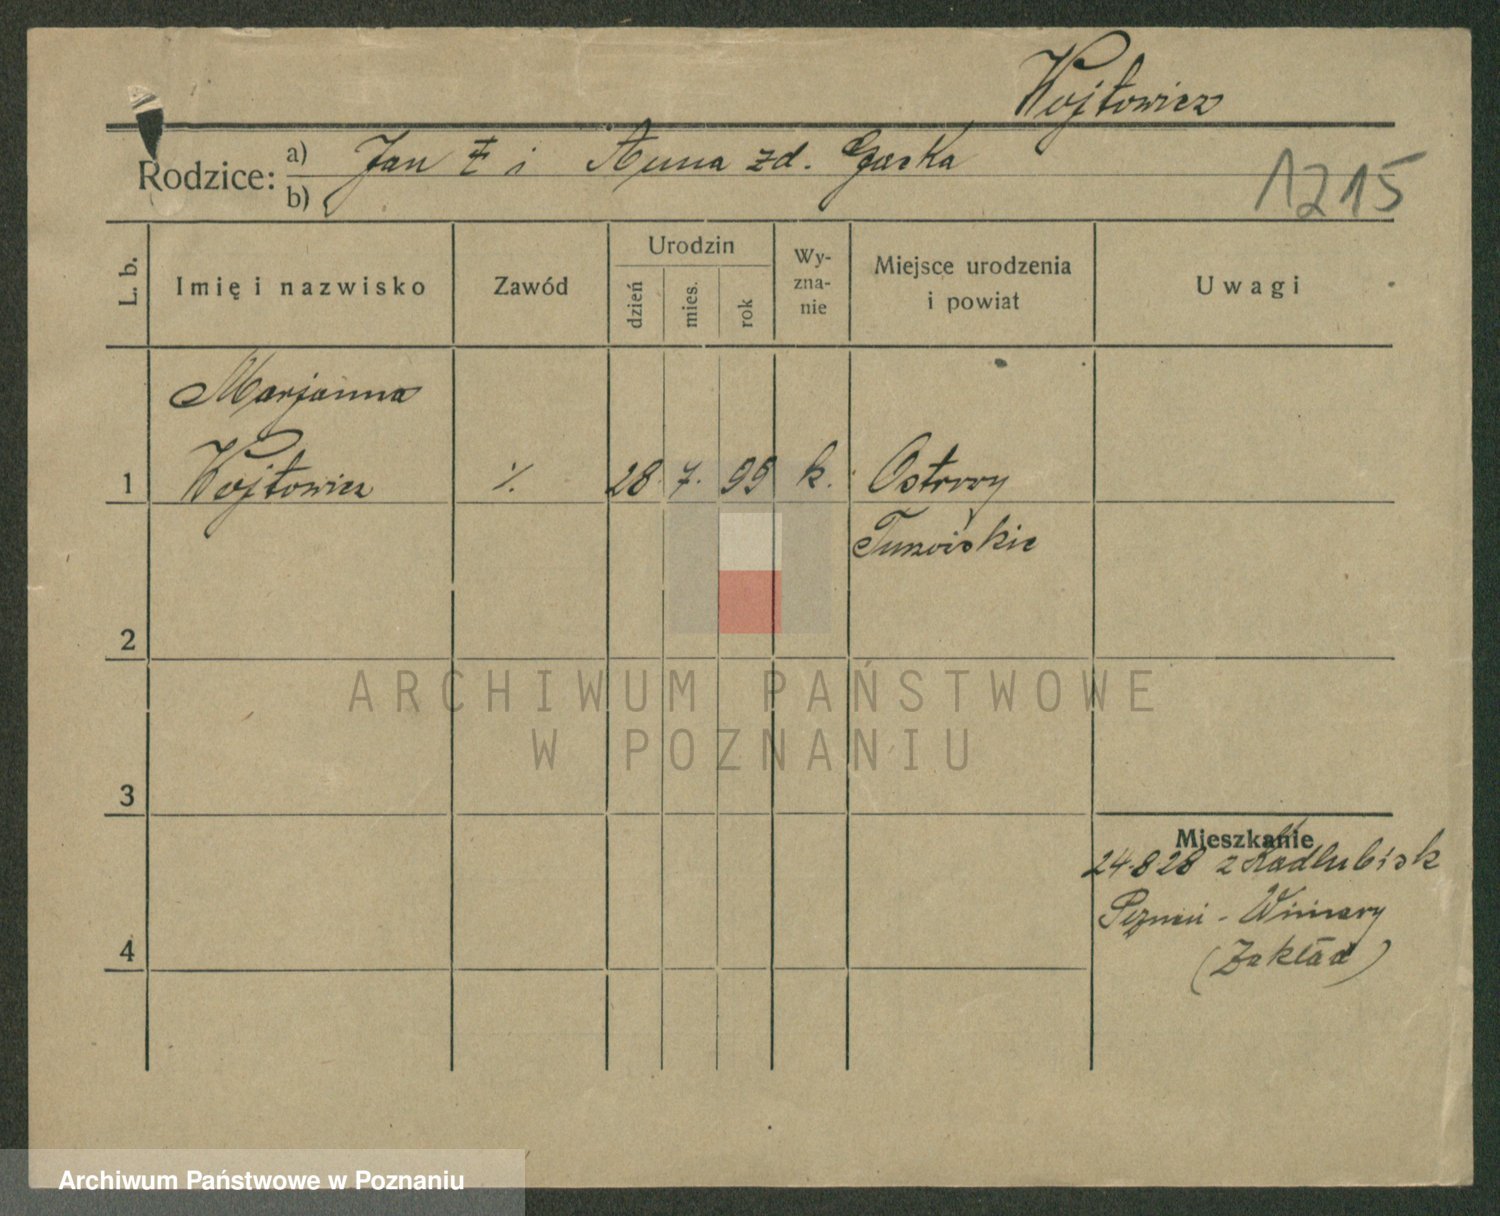 Wojtowicz
Rodzice: a) Jan Ł i Anna zd. Gąska
b)
1215
L. b. Imię i nazwisko Zawód Urodzin dzień mies. rok Wy-zna-nie Miejsce urodzenia i powiat Uwagi
Marjanna
1 Wojtowicz ٪. 28. 7. 99 k. Ostrowy
2
3
4
Mieszkanie
24.8 28 z Kadłubisk
Poznań - Winiary
(Zakład)
ARCHIWUM PAŃSTWOWE
W POZNANIU
Archiwum Państwowe w Poznaniu